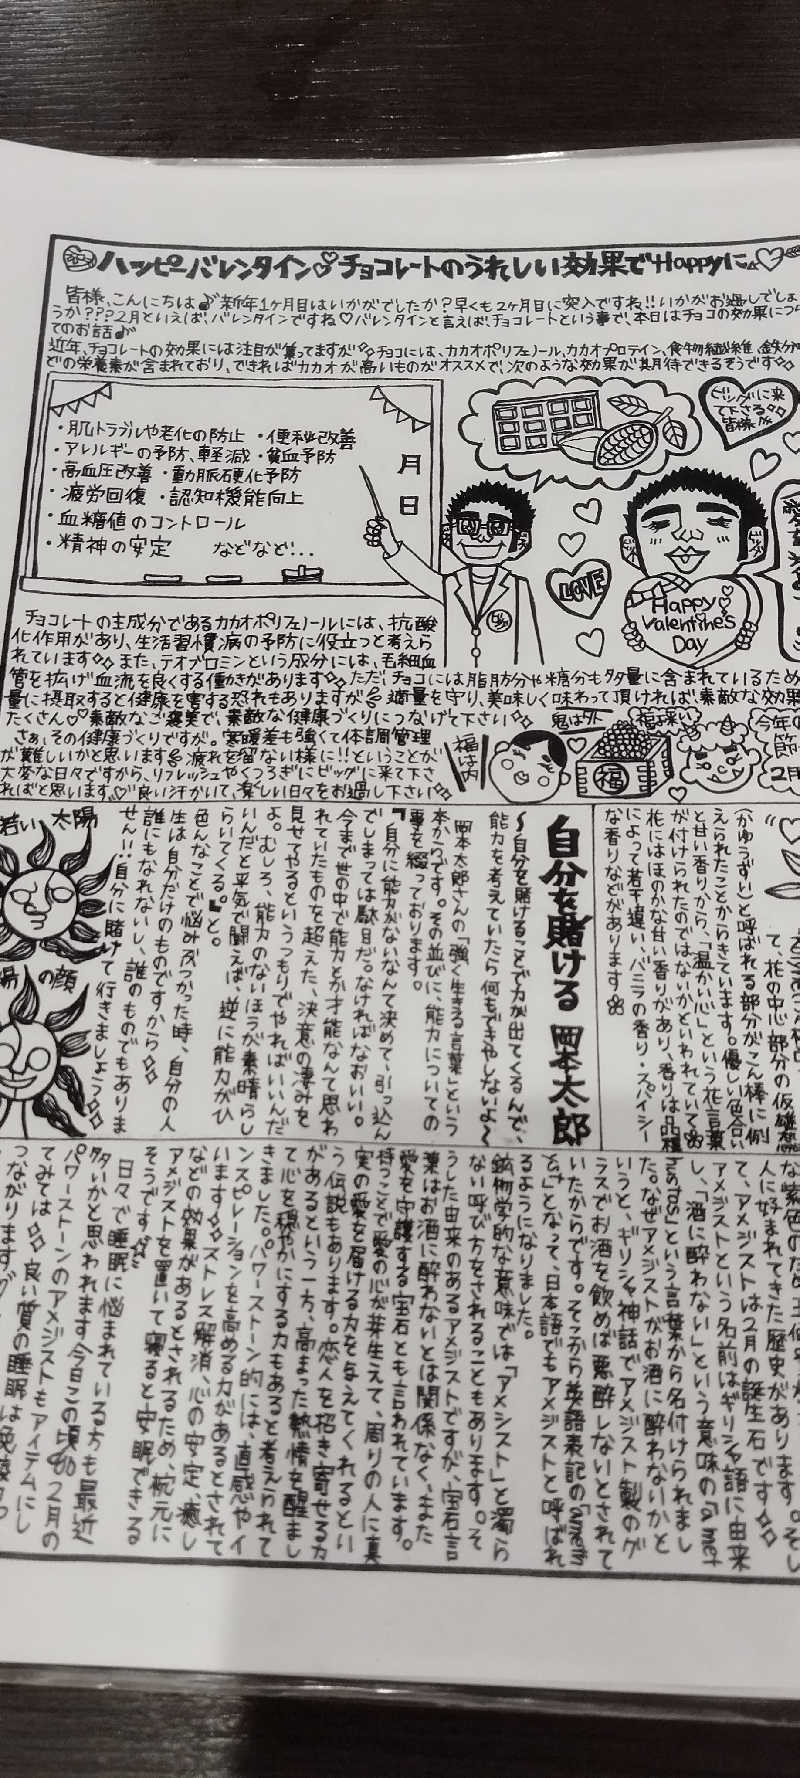 ハッピーバレンタイン チョコレートのうれしい効果でHappyに
皆様、こんにちは♪新年1ヶ月目はいかがでしたか?早くも2ヶ月目に突入ですね!!いかがお過しでしょ
うか???2月といえば、バレンタインですね♡バレンタインと言えば、チョコレートという事で、本日はチョコの効果につ
てのお話♪
近年、チョコレートの効果には注目が集ってますが チョコには、カカオポリフェノール、カカオプロテイン、食物繊維、鉄分
どの栄養素が含まれており、できればカカオが高いものがオススメで、次のような効果が期待できるそうです
・肌トラブルや老化の防止 ・便秘改善
・アレルギーの予防、軽減 ・貧血予防
・高血圧改善 ・動脈硬化予防
・疲労回復 ・認知機能向上
・血糖値のコントロール
・精神の安定 などなど!...
月
日
ビッグに来
て下さる
皆様が
LOVE
Happy
Valentine's
Day
チョコレートの主成分であるカカオポリフェノールには、抗酸
化作用があり、生活習慣病の予防に役立つと考えら
れています また、テオブロミンという成分には、毛細血
管を拡げ血流を良くする働きがあります ただ、チョコには脂肪分や糖分も多量に含まれているため
量に摂取すると健康を害する恐れもありますが 適量を守り、美味しく味わって頂ければ、素敵な効果
たくさん♡素敵なご褒美で、素敵な健康づくりにつなげて下さい
さぁ、その健康づくりですが。寒暖差も強くて体調管理
が難しいかと思います 疲れを溜ない様に!!ということが
大変な日々ですから、リフレッシュやくつろぎにビッグに来て下さ
ればと思います。♡良い汗かいて、楽しい日々をお過し下さい
鬼は外
福は内
福
今年の
節
2月
(かゆうずい)と呼ばれる部分がこん棒に例
えられたことからきています。優しい色合い
と甘い香りから、「温かい心」という花言葉
が付けられたのではないかといわれていて
花にはほのかな甘い香りがあり、香りは品種
によって若干違い、バニラの香り・スパイシー
な香りなどがあります
て、花の中心部分の仮雄蕊
自分を賭ける 岡本太郎
〜自分を賭けることで力が出てくるんで、
能力を考えていたら何もできやしないよ〜
岡本太郎さんの「強く生きる言葉」という
本からです。その並びに、能力についての
事を綴っております。
『自分に能力がないなんて決めて、引っ込ん
でしまっては駄目だ。なければなおいい。
今まで世の中で能力とか才能なんて思わ
れていたものを超えた、決意の凄みを
見せてやるというつもりでやればいいんだ
よ。むしろ、能力のないほうが素晴らし
いんだと平気で闘えば、逆に能力がひ
らいてくる』と。
色んなことで悩みぶつかった時、自分の人
生は自分だけのものですから
誰にもなれないし、誰のものでもありま
せん!!自分に賭けて行きましょう
若い太陽
の顔
人に好まれてきた歴史があります。そし
て、アメジストは2月の誕生石です
アメジストという名前はギリシャ語に由来
し、「酒に酔わない」という意味の「a met
hustos」という言葉から名付けられまし
た。なぜアメジストがお酒に酔わないかと
いうと、ギリシャ神話でアメジスト製のグ
ラスでお酒を飲めば悪酔しないとされて
いたからです。そこから英語表記の「ameth
yst」となって、日本語でもアメジストと呼ばれ
るようになりました。
鉱物学的な意味では「アメシスト」と濁ら
ない呼び方をされることもあります。そ
うした由来のあるアメジストですが、宝石言
葉はお酒に酔わないとは関係なく、また
愛を守護する宝石とも言われています。
持つことで愛の心が芽生えて、周りの人に真
実の愛を届ける力を与えてくれるとい
う伝説もあります。恋人を招き寄せる力
があるという一方、高まった熱情を醒まし
て心を穏やかにする力もあると考えられて
きました。パワーストーン的には、直感やイ
ンスピレーションを高める力があるとされて
います ストレス解消、心の安定、癒し
などの効果があるとされるため、枕元に
アメジストを置いて寝ると安眠できる
そうです
日々で睡眠に悩まれている方も最近
多いかと思われます今日この頃 2月の
パワーストーンのアメジストもアイテムにし
てみては 良い質の睡眠は免疫力
つながります